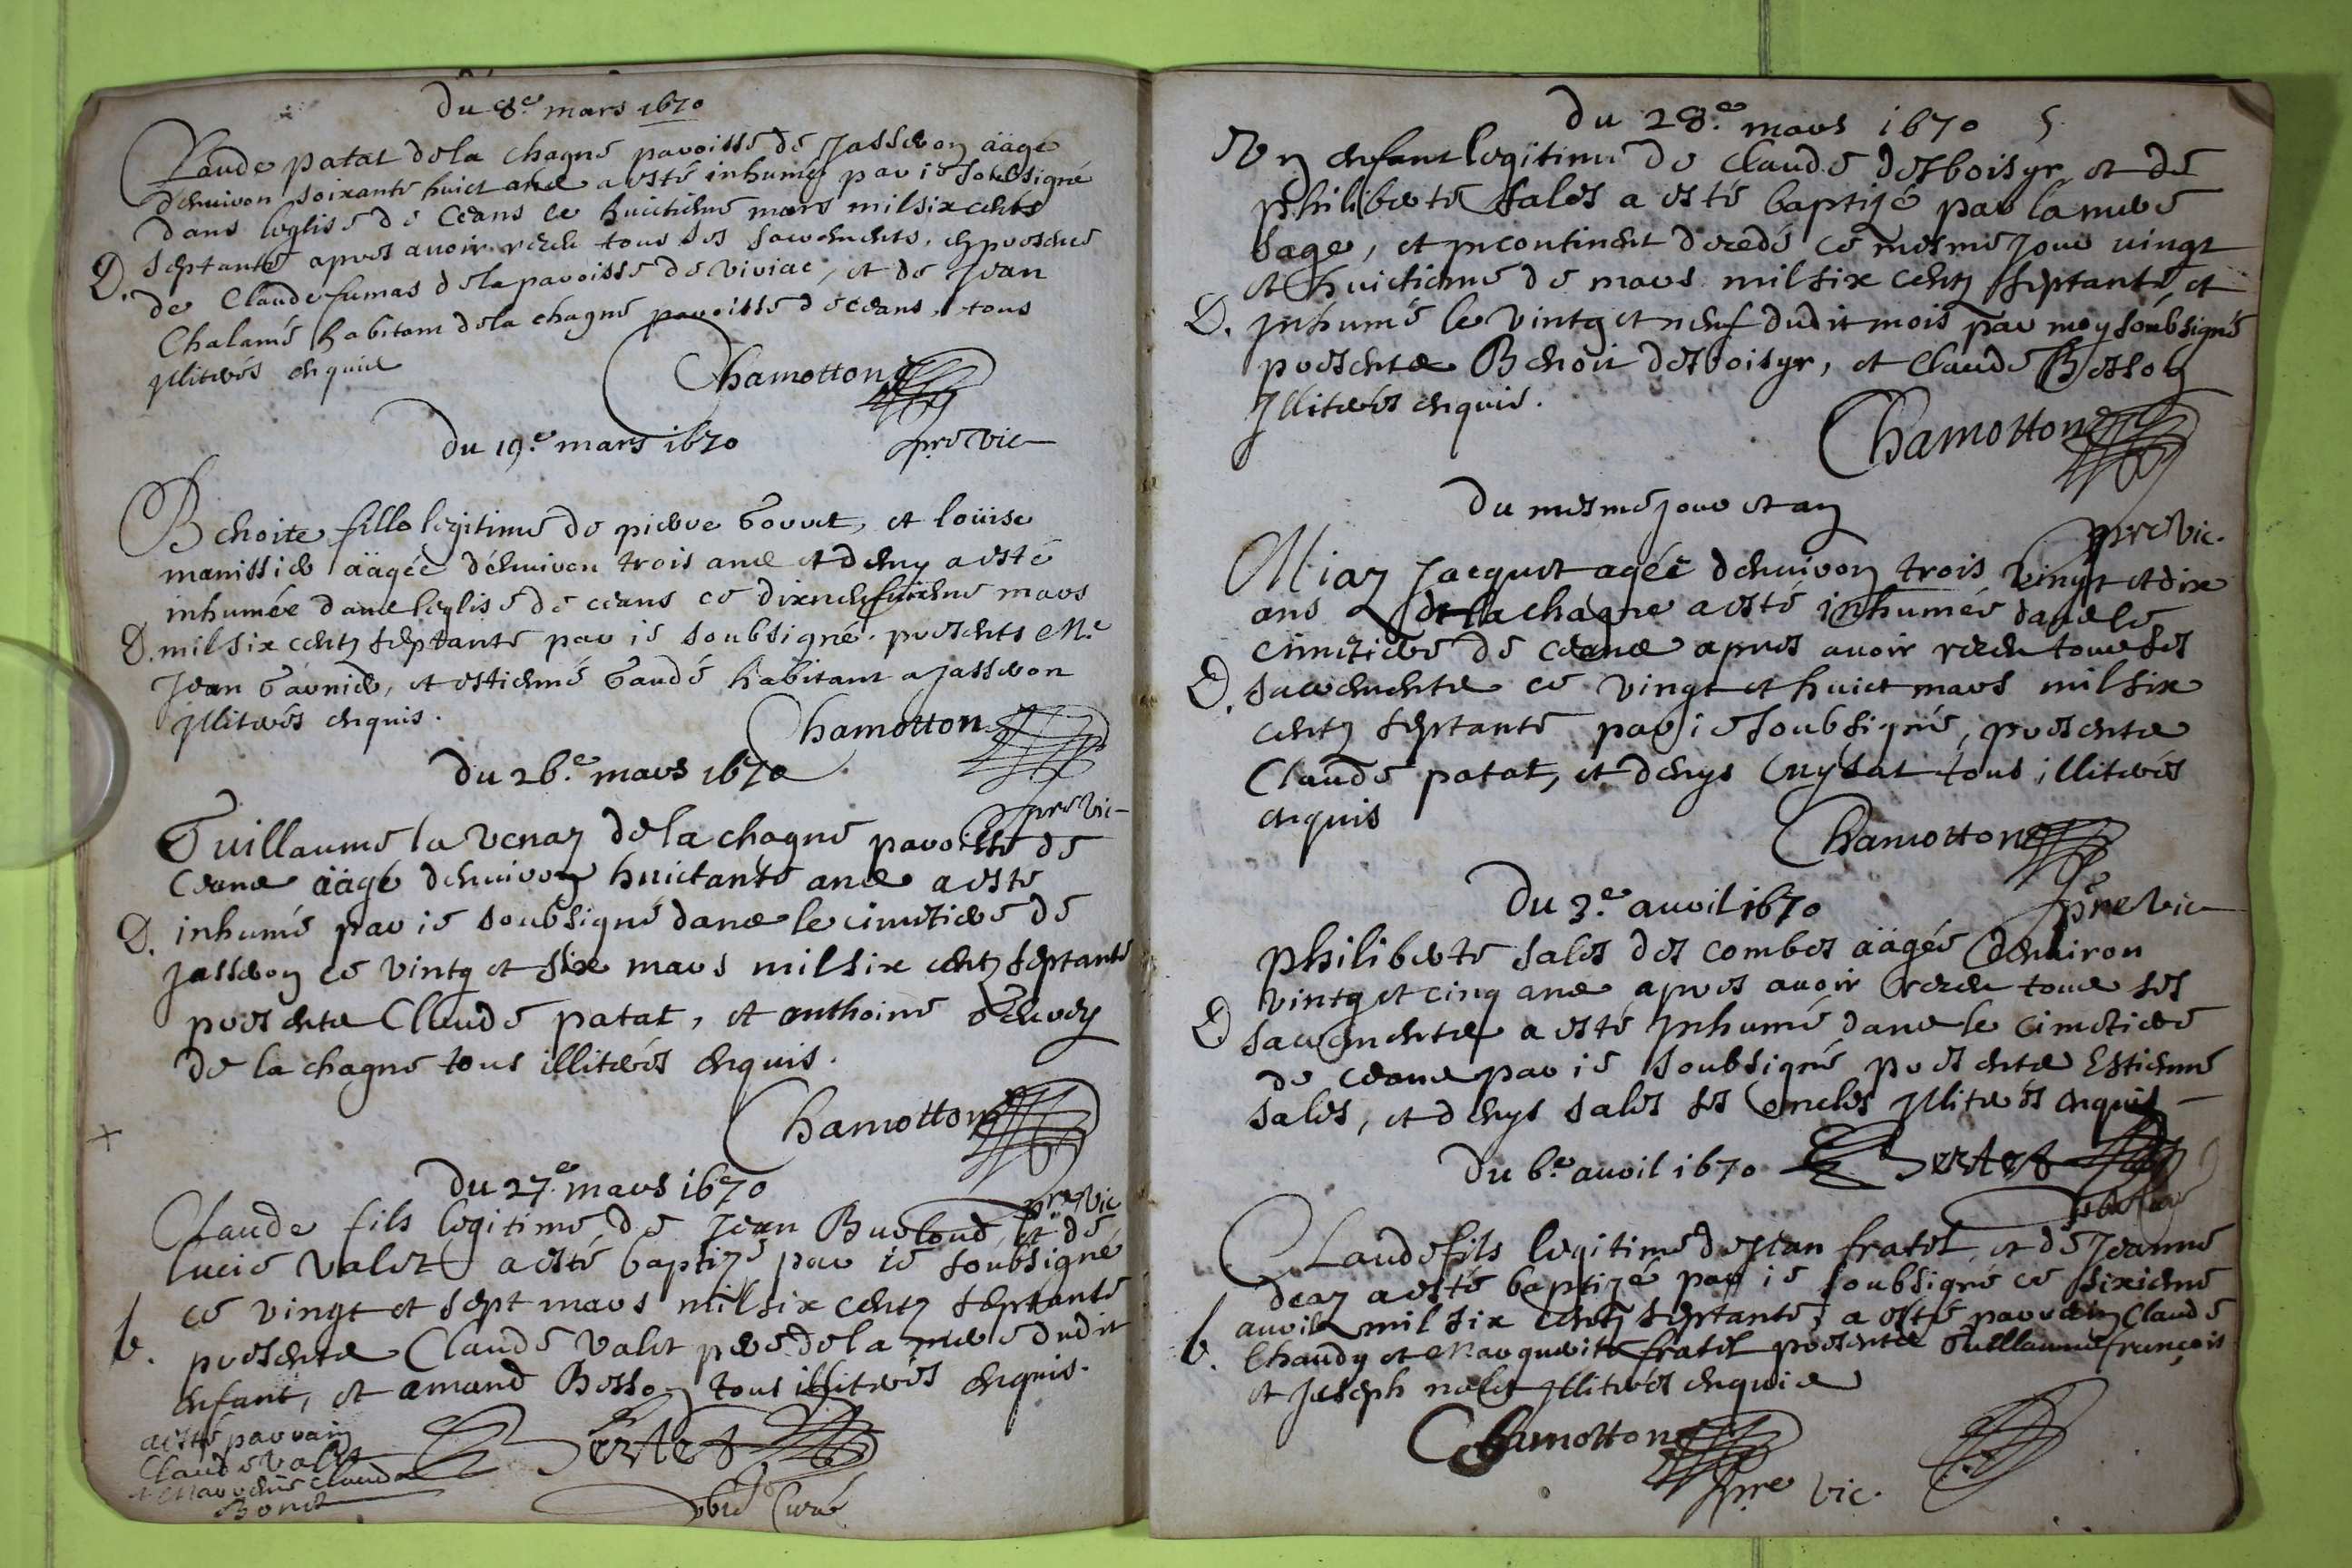 Du 8.e mars 1670
Claude patat de la chagne paroisse de Jasseron äagé
d'environ soixante huict ans a esté inhumé par ie soubsigné
dans leglise de Ceans ce huictiesme mars mil six cents
D. septante apres avoir receu tous ses sacrements, en presence
de Claude fumas de la paroisse de viriac, et de Jean
Chalamé habitant de la chagne paroisse de ceans, tous
Illiterés enquis
Chamotton
pre vic
Du 19.e mars 1670
Benoite fille legitime de pierre Gouvet, et loüise
manissier äagée d'environ trois ans et demy a esté
inhumée dans leglise de ceans ce dixneufviesme mars
D. mil six centz septante par ie soubsigné. presents M.e
Jean Garnier, et estienne Gaude habitant a Jasseron
Illiterés enquis.
Chamotton
pre vic
Du 26.e mars 1670
Guillaume la venaz de la chagne paroisse de
Ceans äagé d'environ huictante ans a esté
D. inhumé par ie soubsigné dans le cimetiere de
Jasseron ce vintg et six mars mil six centz septante
presents Claude patat, et anthoine
de la chagne tous illiterés enquis.
Chamotton
pre vic
Du 27.e mars 1670
Claude fils legitime de Jean Burtoud, et de
lucie Valet a esté baptizé par ie soubsigné
b. ce vingt et sept mars mil six centz septante
presents Claude Valet pere de la mere dudit
enfant, et amand Besson tous illiterés enquis.
a esté parrain
Claude Valet
et marrene Clauda
Bonet
Bertet
Curé
Du 28.e mars 1670 5
Un enfant legitime de Claude desboisyr et de
philiberte sales a esté baptizé par la mere
sage, et incontinent decedé ce mesme jour vingt
et huictieme de mars mil six centz septante et
D. Inhumé le vintg et neuf dudit mois par moy soubsigné
presents Benoit desboisyr, et Claude Besson
Illiterés enquis.
Chamotton
pre vic.
Du mesme jour et an
Miaz Jacquet agée d'environ trois vingt et dix
ans de la chagne a esté inhumée dans le
cimetiere de ceans apres avoir receu tous ses
D. sacrements ce vingt et huict mars mil six
centz septante par ie soubsigné, presents
Claude patat, et denys Cuysat tous illiterés
enquis
Chamotton
pre vic
Du 3.e avril 1670
philiberte sales des combes äagée d'environ
vintg et cinq ans apres avoir receu tous ses
D sacrements a esté Inhumé dans le cimetiere
de ceans par ie soubsigné presents Estienne
sales, et denys sales ses oncles Illiterés enquis
Bertet
Du 6.e avril 1670
Claude fils legitime de Jean fratel, et de Jeanne
deaz a esté baptizé par ie soubsigné ce sixieme
avril mil six centz septante, a esté parrain Claude
b. Chaudy et Marguerite fratel presents Guillaume françois
et Joseph nolet Illiterés enquis
Chamotton
pre vic.